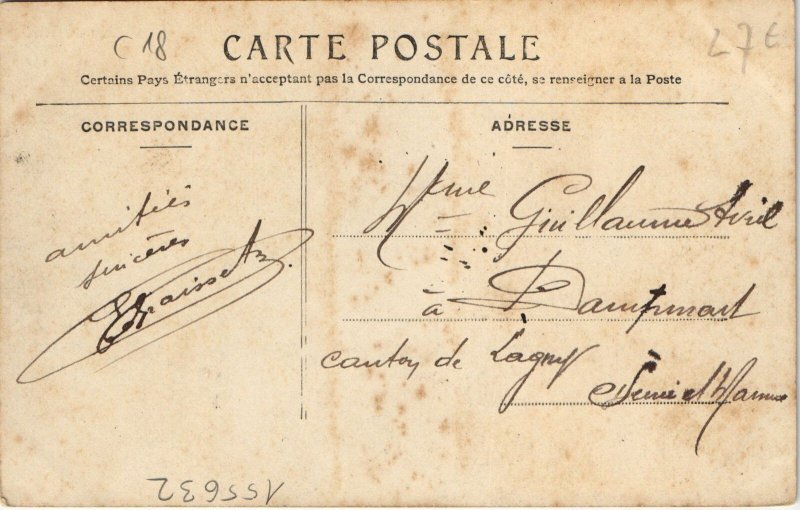 C 18
CARTE POSTALE
27€
Certains Pays Étrangers n'acceptant pas la Correspondance de ce côté, se renseigner a la Poste
CORRESPONDANCE
amitiés
sincères
ADRESSE
Mme Guillaume Avril
à Dampmart
canton de Lagny
Seine et Marne
155632